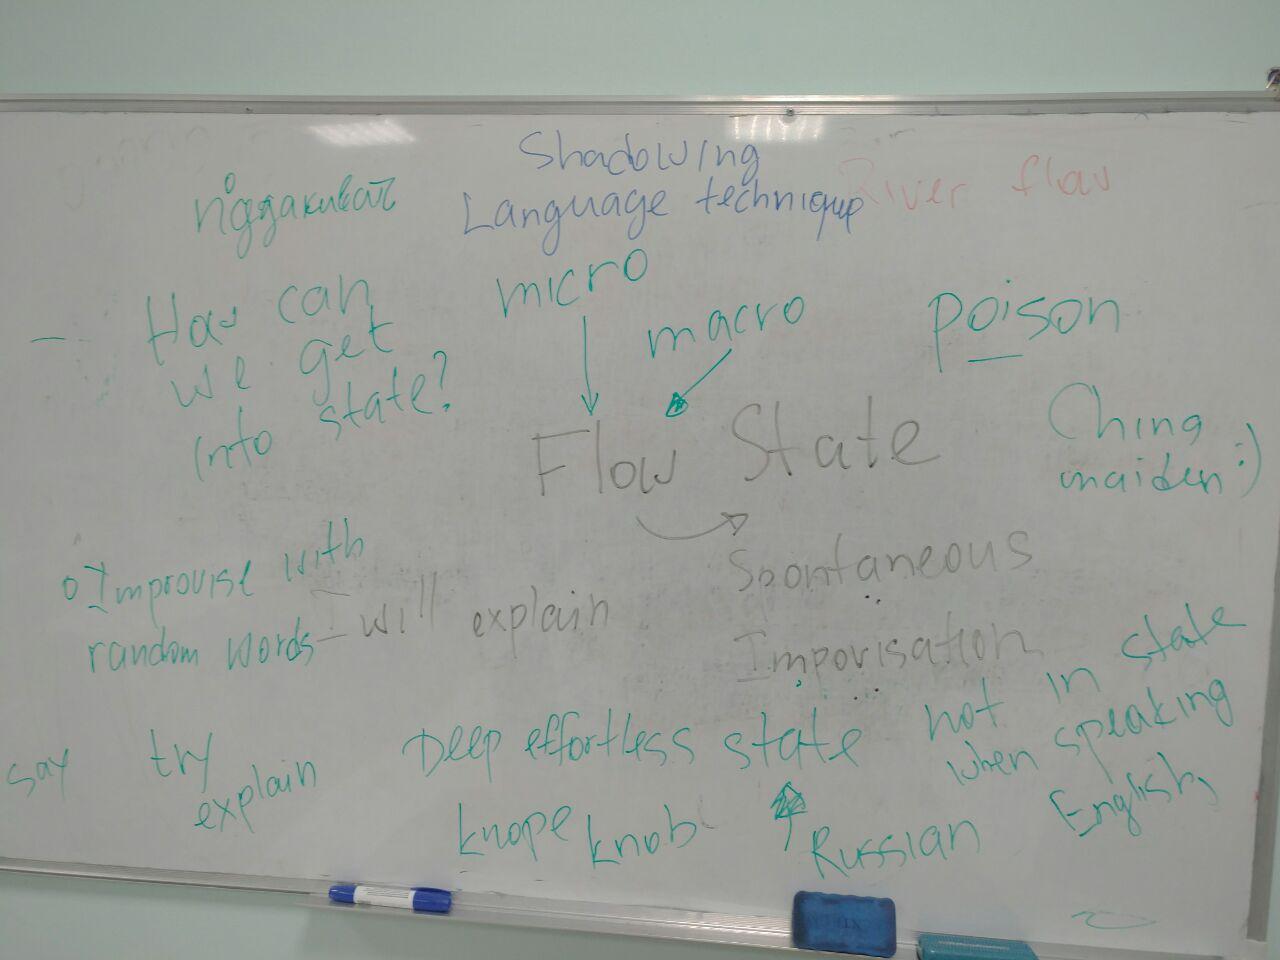 Shadowing
Language technique
River flow
micro
macro
poison
How can
we get
into state?
Flow State
Ching
maiden:)
Spontaneous
Imporisation
o Improvise with
random words - I will explain
say
try
explain
Deep effortless state
not in state
when speaking
English
knope knob
Russian